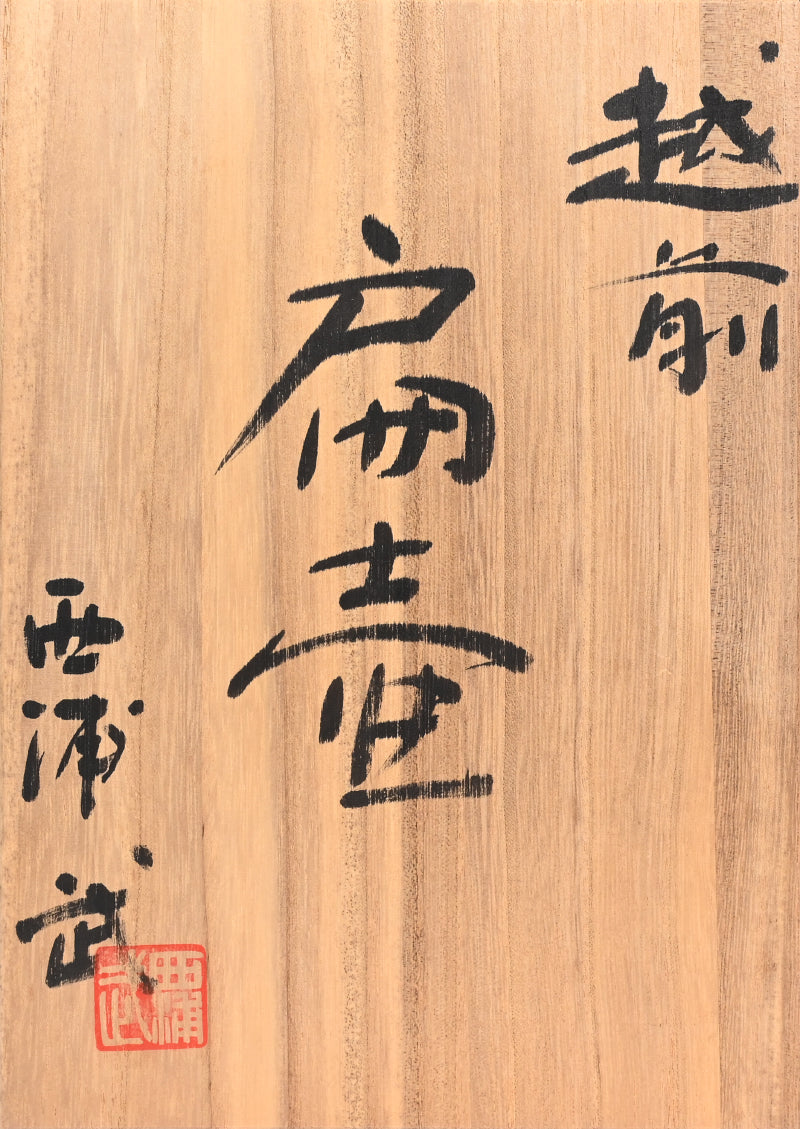 越前
扁壷
西浦武
西浦武